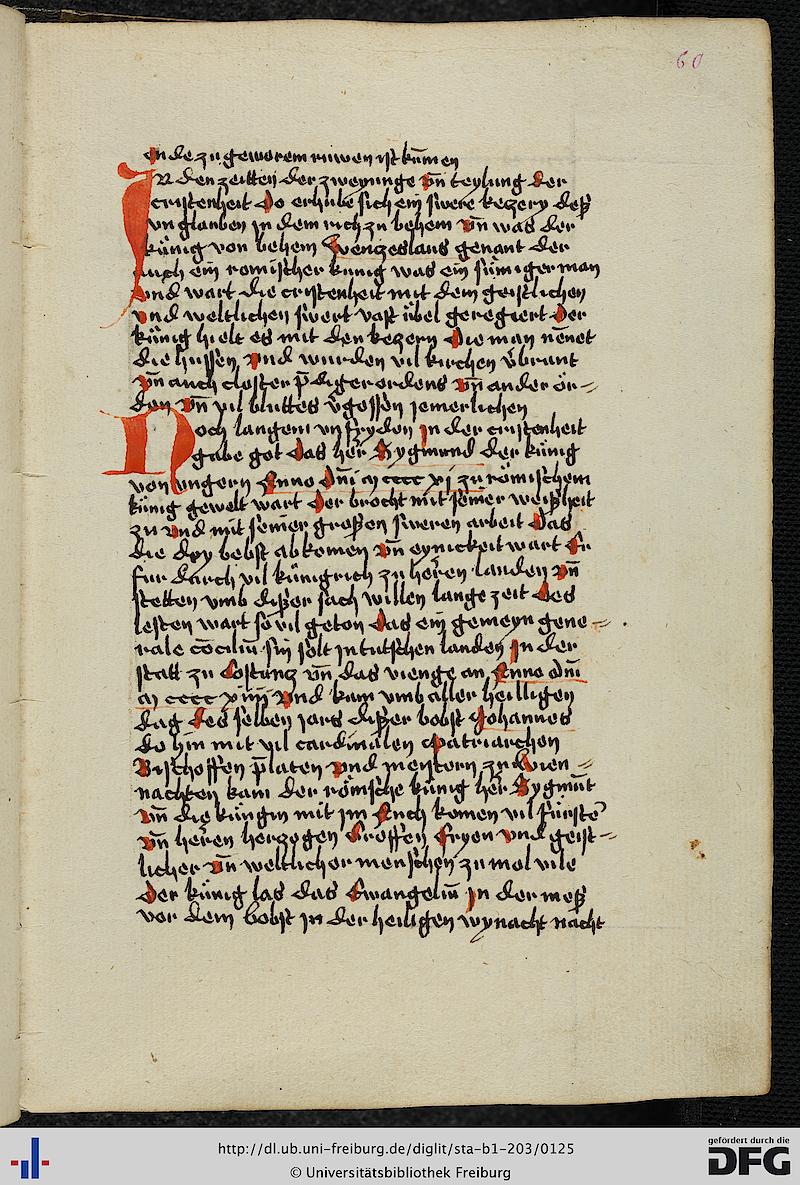 60
ende zu geworem ruwen ist kumen
IN den zeitten der zweyunge vn̄ teylung der
cristenheit Do erhube sich ein swere kezery deß
vnglauben jn dem rich zu behem Vn̄ was der
künig von behem Wenzeslaus genant der
auch ein romischer kunig was ein sümiger man
vnd wart die cristenheit mit dem geistlichen
vnd weltlichen swert vast übel geregiert Der
künig hielt es mit den kezern Die man nēnet
die hussen Vnd wurden vil kirchen v̄brant
Vn̄ auch closter p̄digerordens Vn̄ ander ör-
den Vn̄ vil bluttes v̄gossen jemerlichen
Noch langem vnfryden jn der cristenheit
gabe got Das her Sygmund der künig
von vngern Anno dn̄i m cccc xj zu römischem
künig gewelt wart Der brocht mit seiner weißheit
zu Vnd mit seiner großen sweren arbeit Das
die dry bebst abkomen Vn̄ eynickeit wart Er
fur durch vil künigrich zu herren landen Vn̄
stetten vmb dißer sach willen lange zeit Des
lesten wart so vil geton Das ein gemeyn gene-
rale cōciliū sin solt jn tutschen landen Jn der
statt zu Costanz Vn̄ das vienge an Anno dn̄i
m cccc xiiij Vnd kam vmb aller heilligen
dag des selben jars dißer bobst Johannes
do hin mit vil cardinalen Patriarchen
Bischoffen p̄laten vnd meystern zu Wien-
nachten kam der römsche künig her Sygmūt
Vn̄ die küngin mit jm Auch komen vil fürstē
Vn̄ herren herzogen Groffen Fryen Vnd geist-
licher Vn̄ weltlicher menschen zu mol vile
Der künig las das Ewangeliū Jn der meß
vor dem bobst jn der heiligen wynacht nacht
http://dl.ub.uni-freiburg.de/diglit/sta-b1-203/0125
© Universitätsbibliothek Freiburg
gefördert durch die
DFG